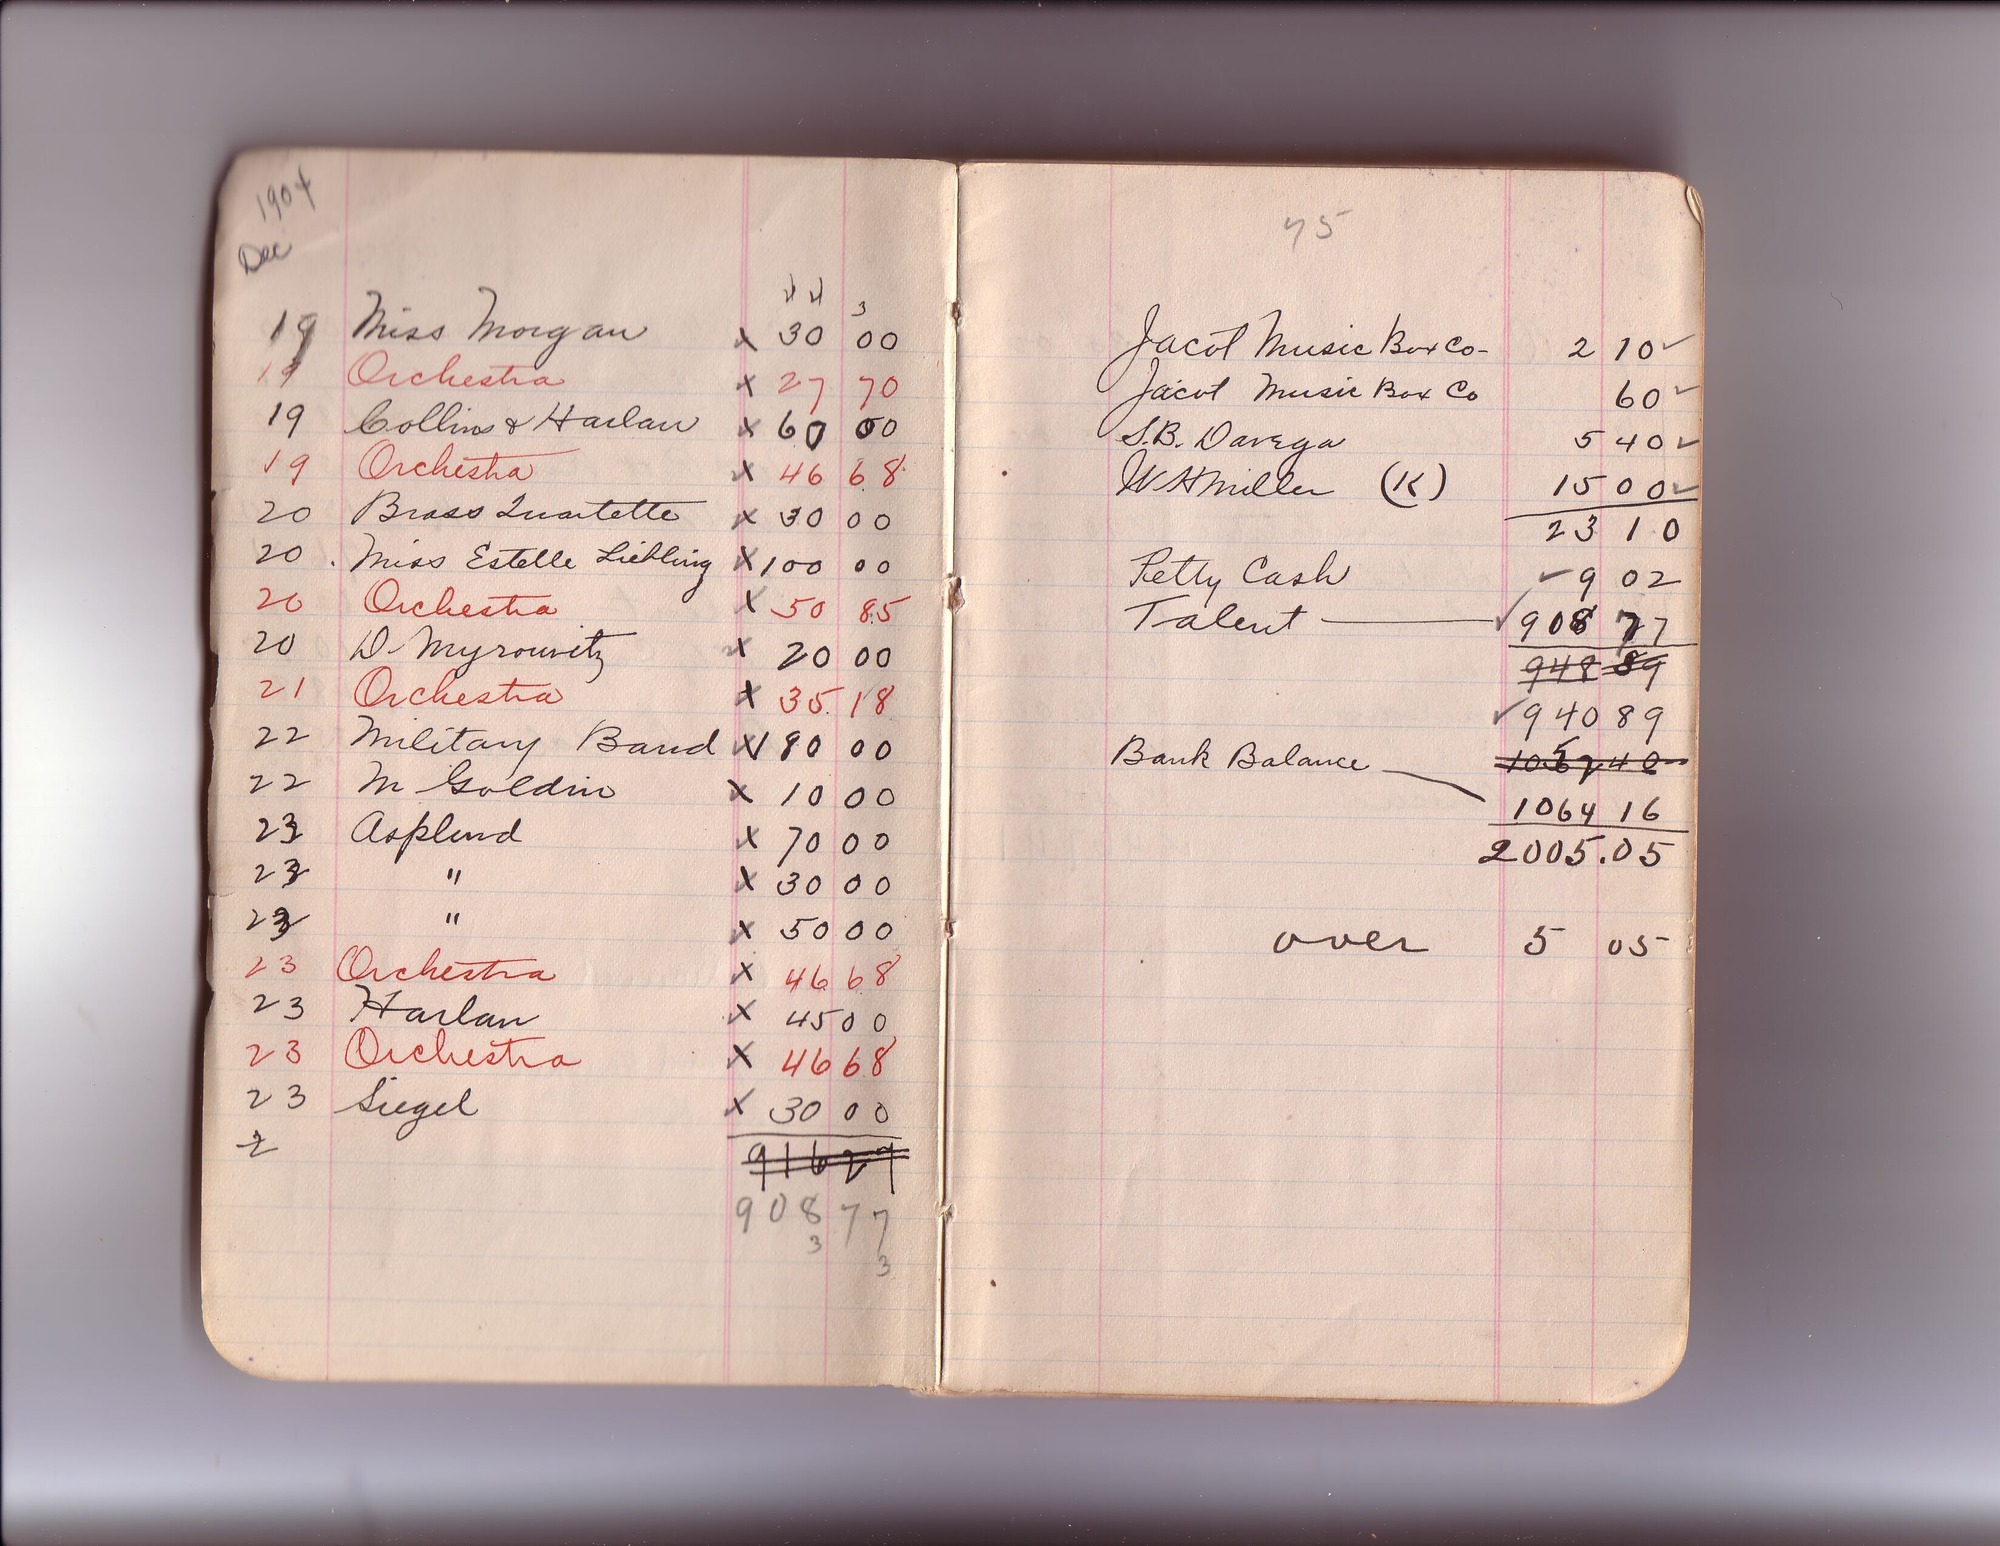 1904
Dec
44 3
19 Miss Morgan x 30 00
19 Orchestra x 27 70
19 Collins & Harlan x 60 00
19 Orchestra x 46 68
20 Brass Quartette x 30 00
20 . Miss Estelle Liebling x 100 00
20 Orchestra x 50 85
20 D. Myrouvitz x 20 00
21 Orchestra x 35.18
22 Military Band x 180 00
22 M Goldin x 10 00
23 Asplund x 70 00
23 " x 30 00
23 " x 50 00
23 Orchestra x 46 68
23 Harlan x 45 00
23 Orchestra x 46 68
23 Siegel x 30 00
2 916 27
908 77
3 3
75
Jacot Music Box Co- 2 10 ✓
Jacot Music Box Co 60 ✓
S.B. Davega 5 40 ✓
W H Miller (K) 15 00 ✓
23 10
Petty Cash ✓ 9 02
Talent ✓ 908 77
948 89
✓ 940 89
Bank Balance
1064 16
2005.05
over 5 05